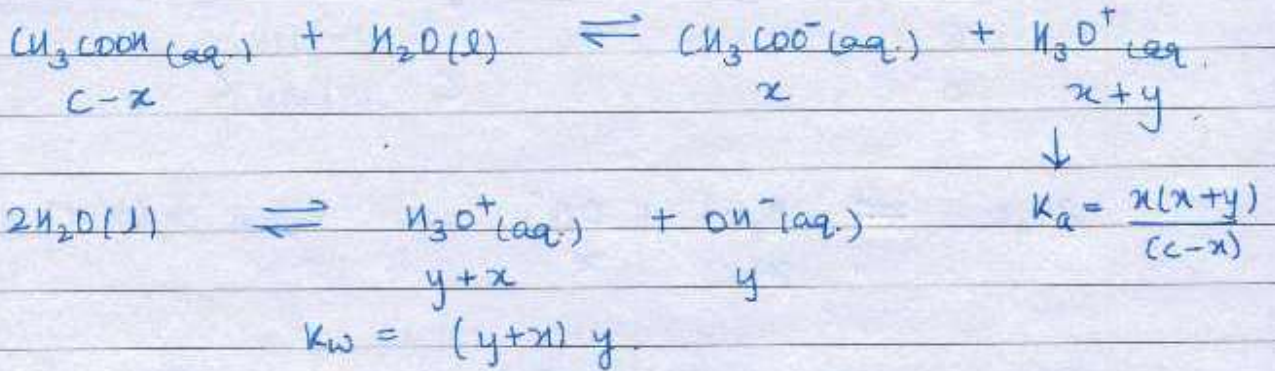 CH₃COOH (aq.) + H₂O(l) ⇌ CH₃COO⁻(aq.) + H₃O⁺(aq.
c-x x x+y
↓
2H₂O(l) ⇌ H₃O⁺(aq.) + OH⁻(aq.) Kₐ = x(x+y)/(c-x)
y+x y
Kw = (y+x) y.